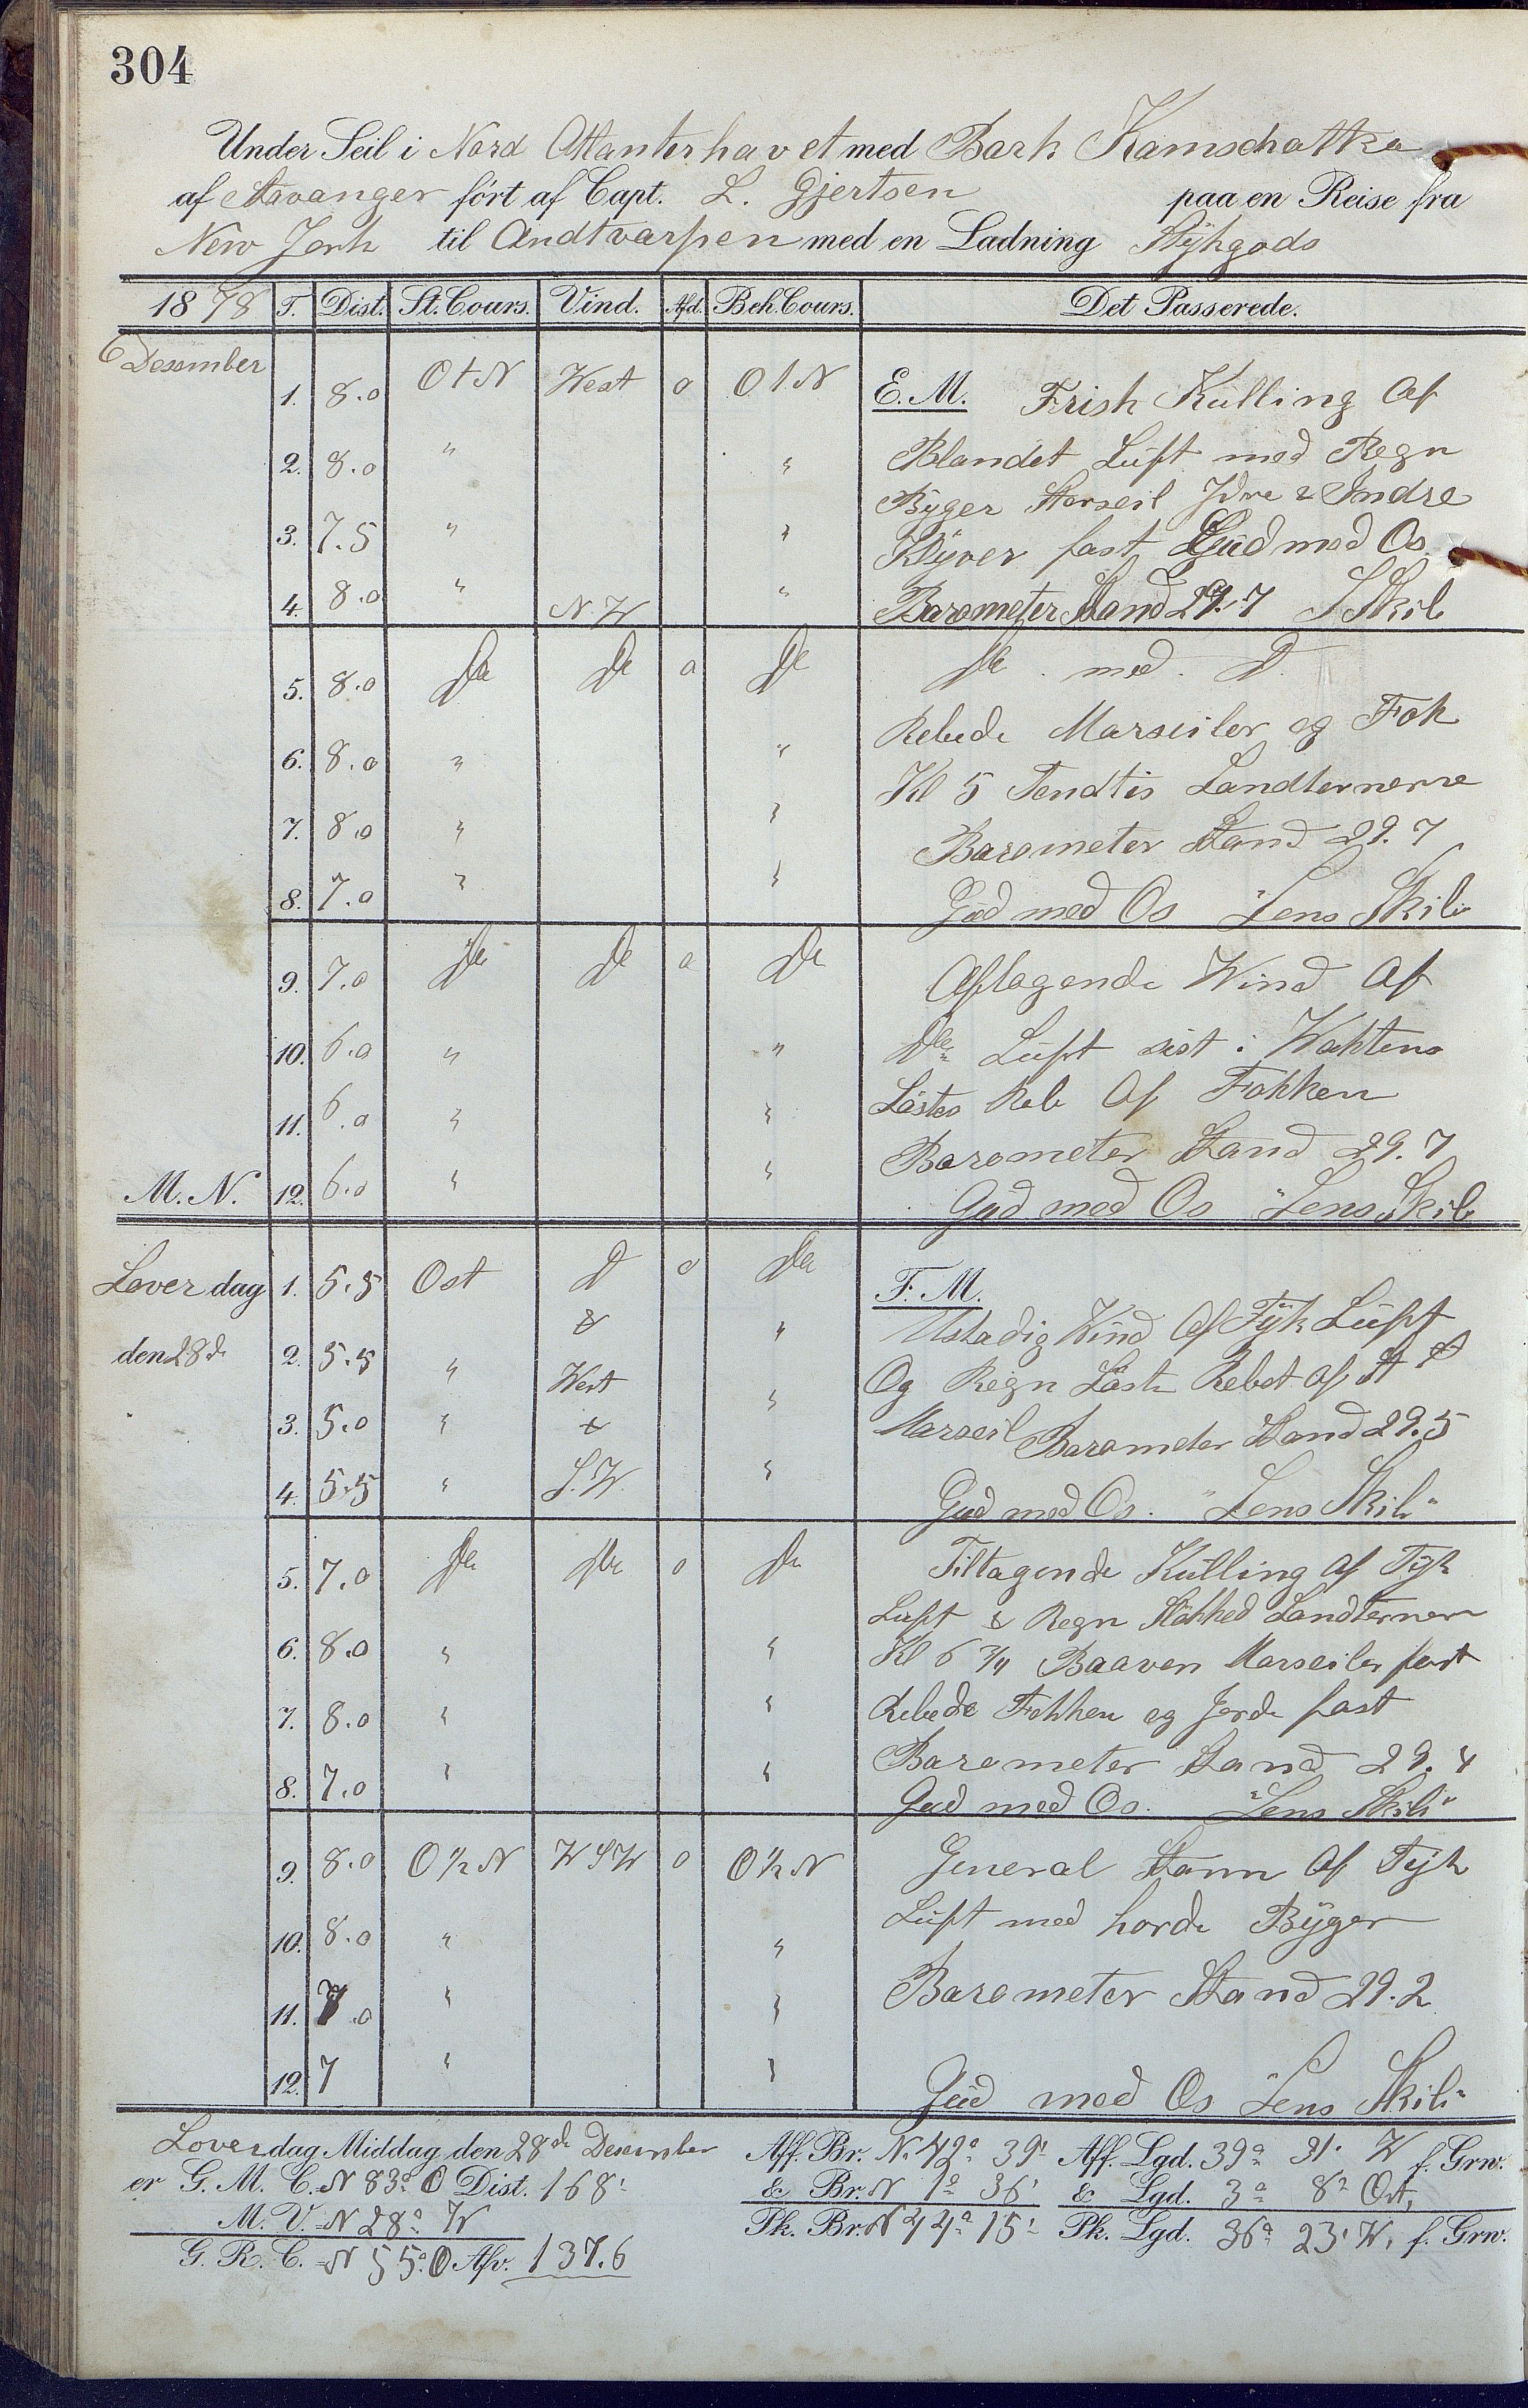 304
Under Seil i Nord Atlanterhavet med Bark Kamschatka
af Stavanger fört af Capt. L. Gjertsen paa en Reise fra
New Jork til Andtvarpen med en Ladning Stykgods
1878 T. Dist. St. Cours. Vind. Afd. Beh. Cours. Det Passerede.
Desember
1. 8.0 O t N West 0 O t. N E. M. Frish Kulling Af
2. 8.0 " " Blandet Luft med Regn
Byger Storseil Jdre & Indre
3. 7.5 " " Klyver fast Gud med Os.
4. 8.0 " N. W " Barometer Stand 29.7 J Skib
5. 8.0 Do Do 0 Do Do. med. D.
6. 8.0 " " Rebede Marseiler og Fok
Kl 5 Tendtis Landternerne
7. 8.0 " " Barometer Stand 29.7
8. 7.0 " " Gud med Os "Lens Skib"
9. 7.0 Do Do 0 Do Aftagende Wind Af
10. 6.0 " " Do Luft sist i Wahtens
11. 6.0 " " Löstes Reb Af Fokken
Barometer Stand 29.7
M. N. 12. 6.0 " " Gud med Os "Lens Skib
Loverdag 1. 5.5 Ost D 0 Do F. M.
& Ustadig Wind Af Tyk Luft
den 28de 2. 5.5 " West " Og Regn Löste Rebet af St
3. 5.0 " & " Marseil Barometer Stand 29.5
4. 5.5 " S. W. " Gud med Os. "Lens Skib"
5. 7.0 Do Do 0 Do Tiltagende Kulling Af Tyk
Luft & Regn Slökked Landterner
6. 8.0 " " Kl 6 3/4 Baaven Marseiler fast
7. 8.0 " " Rebede Fokken og Jorde fast
Barometer Stand 29.4
8. 7.0 " " Gud med Os. "Lens Skib"
9. 8.0 O 1/2 N W S W 0 O 1/2 N General Storm Af Tyk
10. 8.0 " " Luft med horde Byger
11. 7.0 " " Barometer Stand 29.2
12. 7 " " Gud med Os "Lens Skib"
Loverdag Middag den 28de Desember Aff. Br. N. 42° 39' Aff. Lgd. 39° 31' W f. Grw.
er G. M. C. N 83° O Dist. 168' & Br. N 1° 36' & Lgd. 3° 8' Ost,
M. V. N 28° W Pk. Br. N 44° 15' Pk. Lgd. 36° 23' W. f. Grw.
G. R. C. N 55° O Afv. 137.6